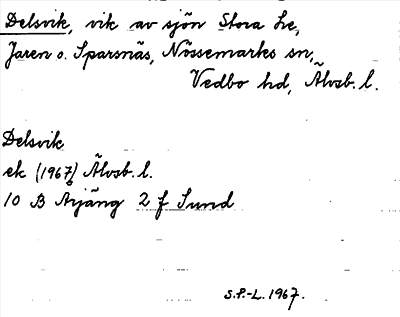 Delsvik, vik av sjön Stora Le,
Jaren o. Sparsnäs, Nössemarks sn,
Vedbo hd, Älvsb. l.
Delsvik
ek (1967) Älvsb. l.
10 B Årjäng 2 f Sund
S.P.-L. 1967.